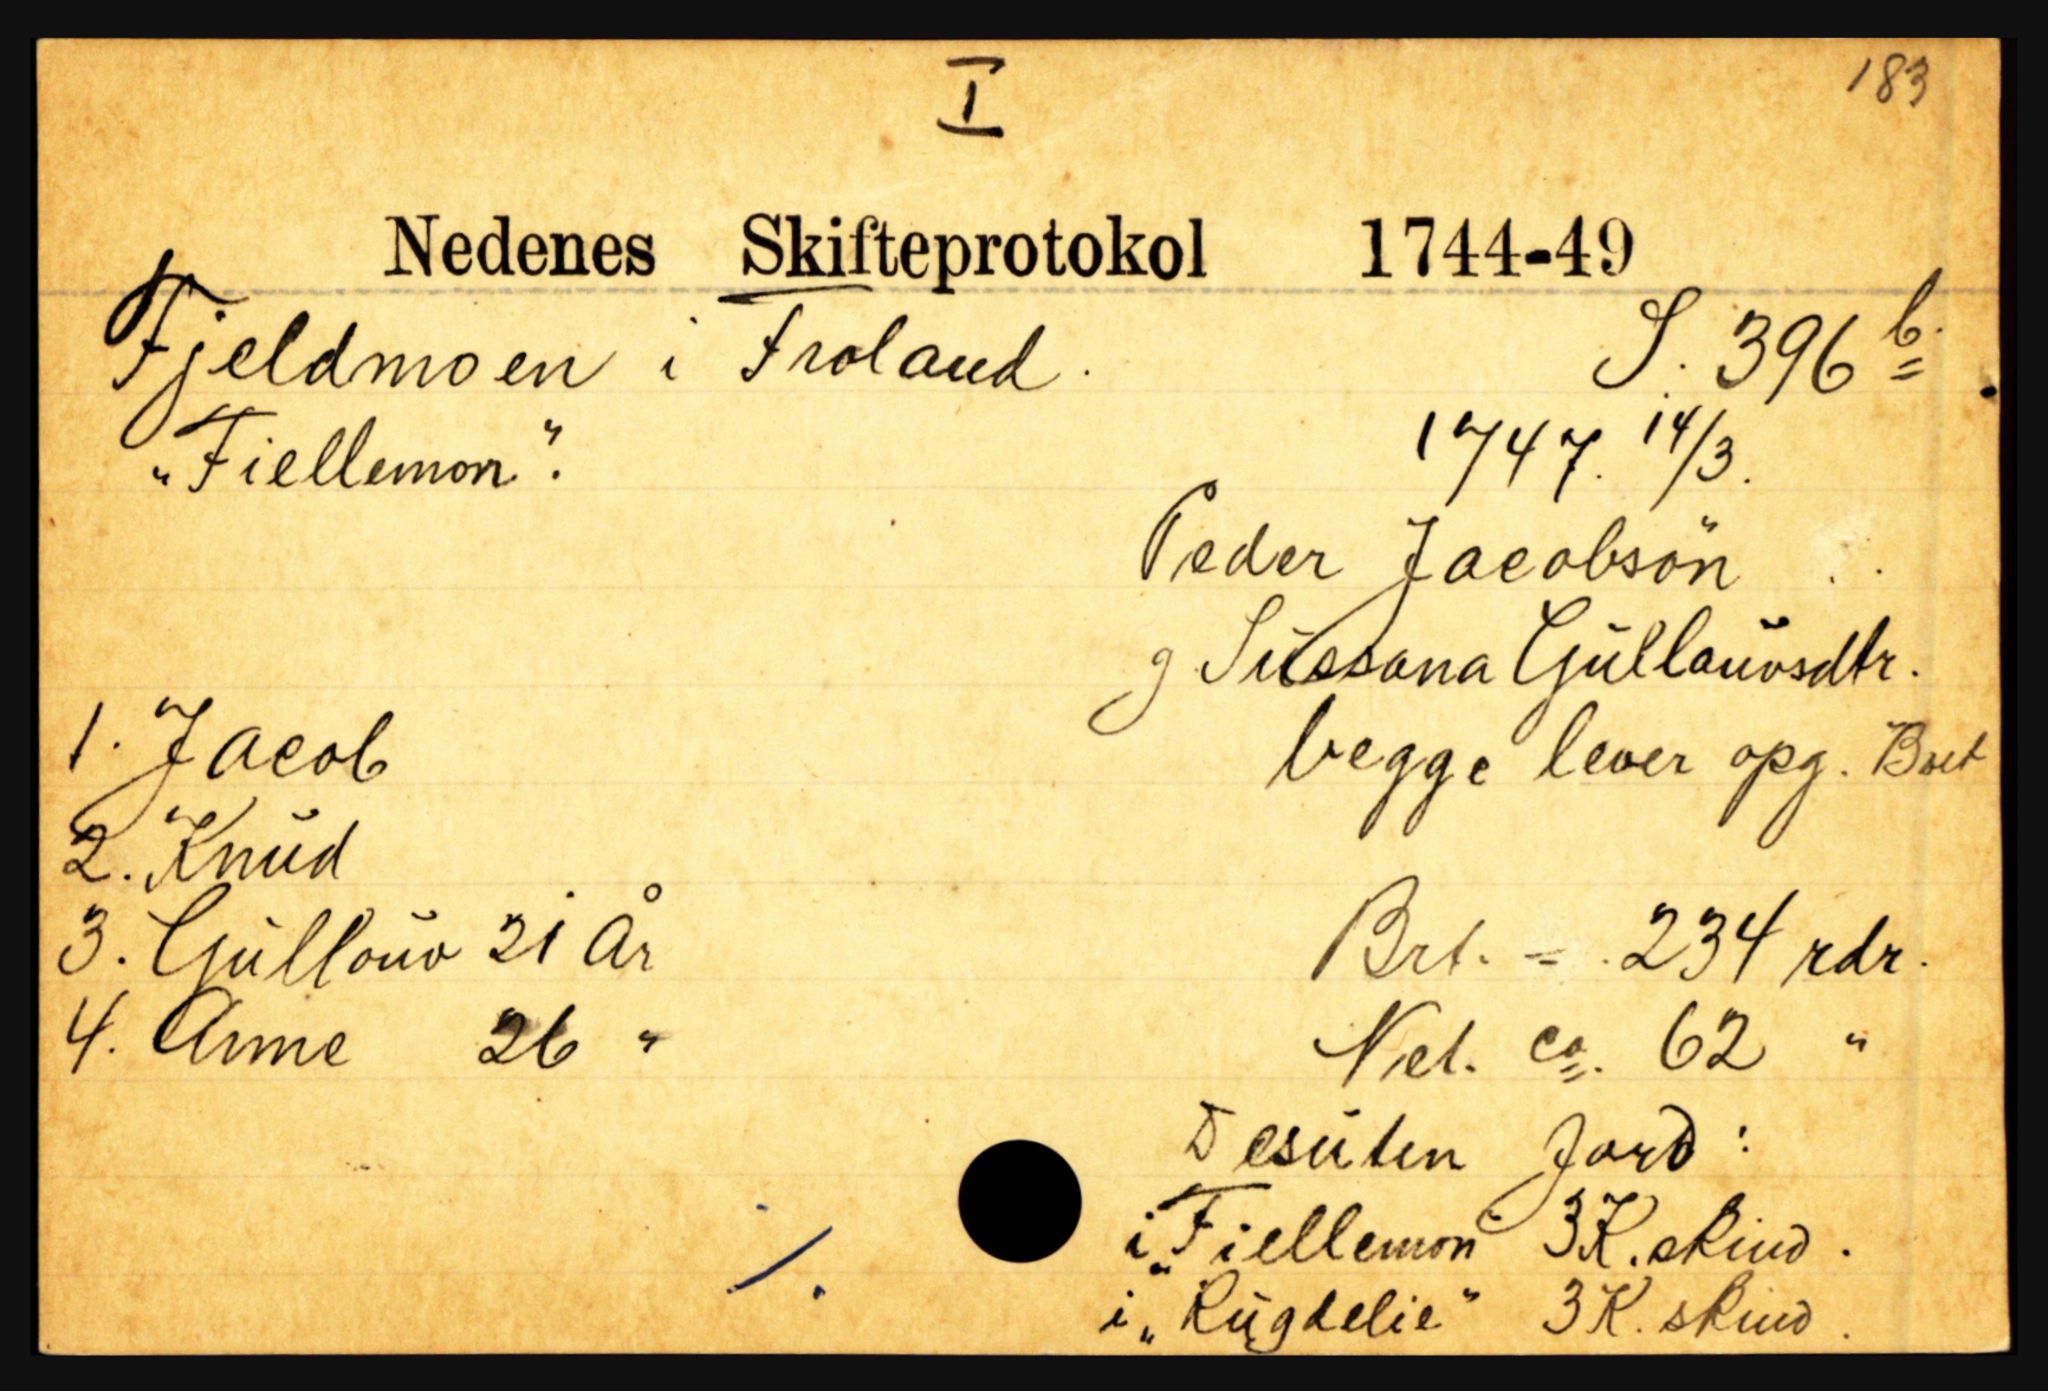 183
I
Nedenes Skifteprotokol 1744-49
Fjeldmoen i Froland. S. 396 b.
"Fiellemon". 1747. 14/3.
Peder Jacobsön
g Süssana Güllaüvsdtr.
1. Jacob begge lever opg. Boet
2. Knüd
3. Güllaüv 21 År Brt. = 234 rdr.
4. Anne 26 " Net. ca. 62 "
Desüten Jord:
i "Fiellemon" 3 K. skind.
i "Rügdelie" 3 K. skind.
/.